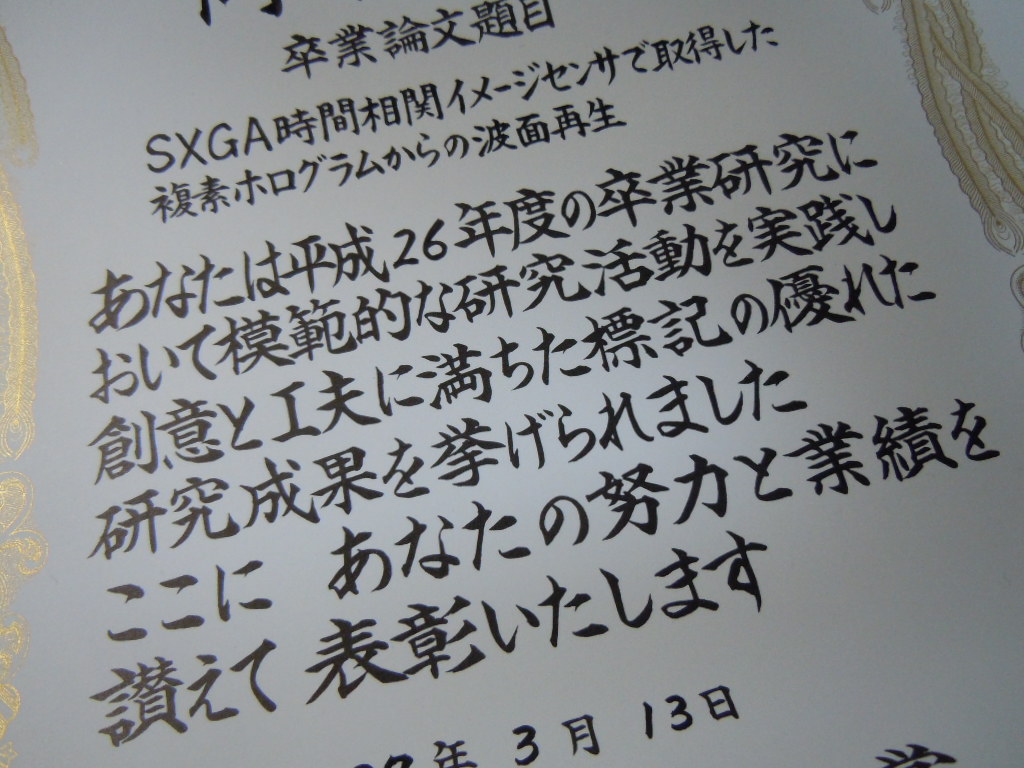 卒業論文題目
SXGA時間相関イメージセンサで取得した
複素ホログラムからの波面再生
あなたは平成26年度の卒業研究に
おいて模範的な研究活動を実践し
創意と工夫に満ちた標記の優れた
研究成果を挙げられました
ここに あなたの努力と業績を
讃えて表彰いたします
年3月13日